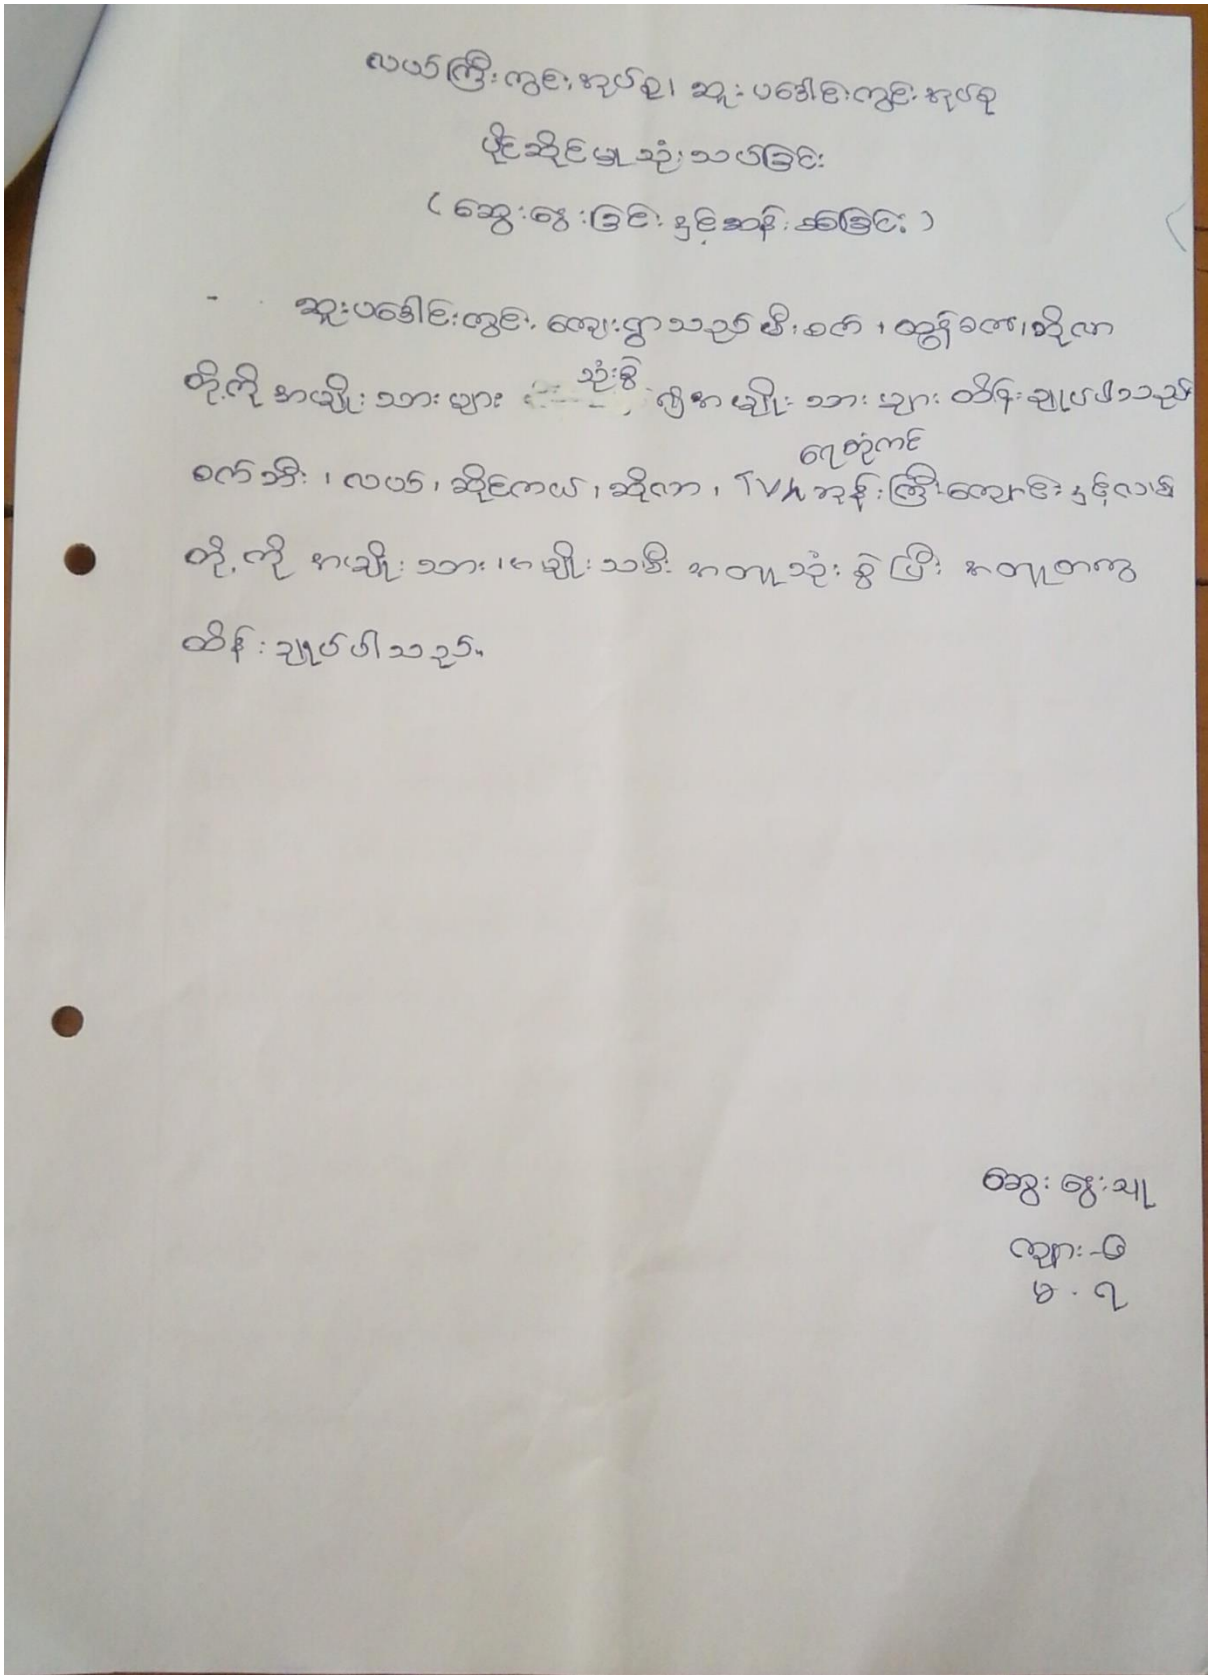 လယ်ကြီးကွင်းအုပ်စု၊ ဆူးပဒေါင်းကွင်းအုပ်စု
ပိုင်ဆိုင်မှုသုံးသပ်ခြင်း
(ဆွေးနွေးခြင်းနှင့်ဆန်းစစ်ခြင်း)
- ဆူးပဒေါင်းကွင်း ကျေးရွာသည် မီးစက်၊ ထွန်စက်၊ ဆိုလာ
တို့ကို အမျိုးသားများ သုံးစွဲ၍ အမျိုးသားများ ထိန်းချုပ်ပါသည်
စက်ဘီး၊ လယ်၊ ဆိုင်ကယ်၊ ဆိုလာ၊ TV၊ ရေတုံကင် ဘုန်းကြီးကျောင်းနှင့်
တို့ကို အမျိုးသား၊ အမျိုးသမီး အတူသုံးစွဲပြီး အတူတကွ
ထိန်းချုပ်ပါသည်။
ဆွေးနွေးသူ
ကျား-၆
မ - ၇